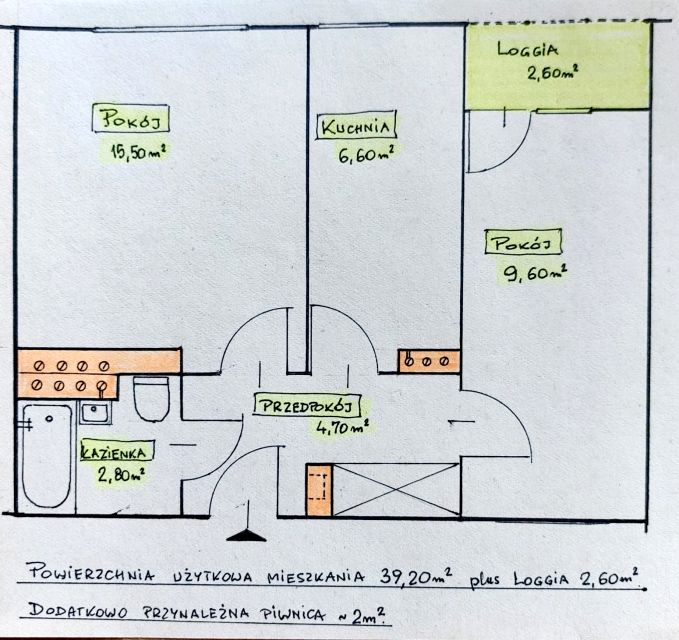 LOGGIA
2,60m²
POKÓJ
15,50m²
KUCHNIA
6,60m²
POKÓJ
9,60m²
PRZEDPOKÓJ
4,70m²
ŁAZIENKA
2,80m²
POWIERZCHNIA UŻYTKOWA MIESZKANIA 39,20m² plus LOGGIA 2,60m².
DODATKOWO PRZYNALEŻNA PIWNICA ~2m².